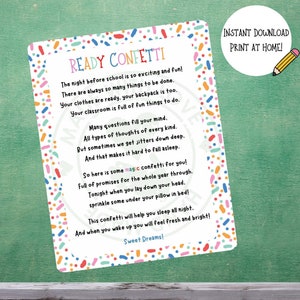 READY CONFETTI
The night before school is so exciting and fun!
There are always so many things to be done.
Your clothes are ready, your backpack is too.
Your classroom is full of fun things to do.
Many questions fill your mind.
All types of thoughts of every kind.
But sometimes we get jitters down deep.
And that makes it hard to fall asleep.
So here is some magic confetti for you!
Full of promises for the whole year through.
Tonight when you lay down your head,
sprinkle some under your pillow in bed!
This confetti will help you sleep all night.
And when you wake up you will feel fresh and bright!
Sweet Dreams!
INSTANT DOWNLOAD
PRINT AT HOME!